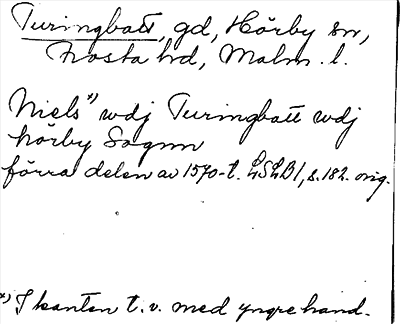 Turingbatt, gd, Hörby sn,
Frosta hd, Malm. l.
Niels*) wdj Turingbatt wdj
hörby Sognn
förra delen av 1570-t. LSLB1, s. 182. orig.
*) I kanten t. v. med yngre hand.